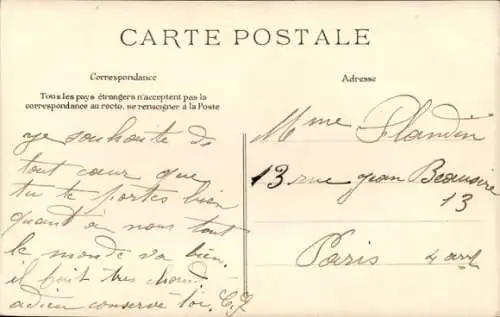 CARTE POSTALE
Correspondance
Adresse
Tous les pays étrangers n'acceptent pas la
correspondance au recto, se renseigner à la Poste
je souhaite de
tout cœur que
tu te portes bien
quant à nous tout
le monde va bien.
il fait très chaud
adieu conserve toi. C. J
Mme Flandin
13 rue Jean Beausire
13
Paris 4 arrt